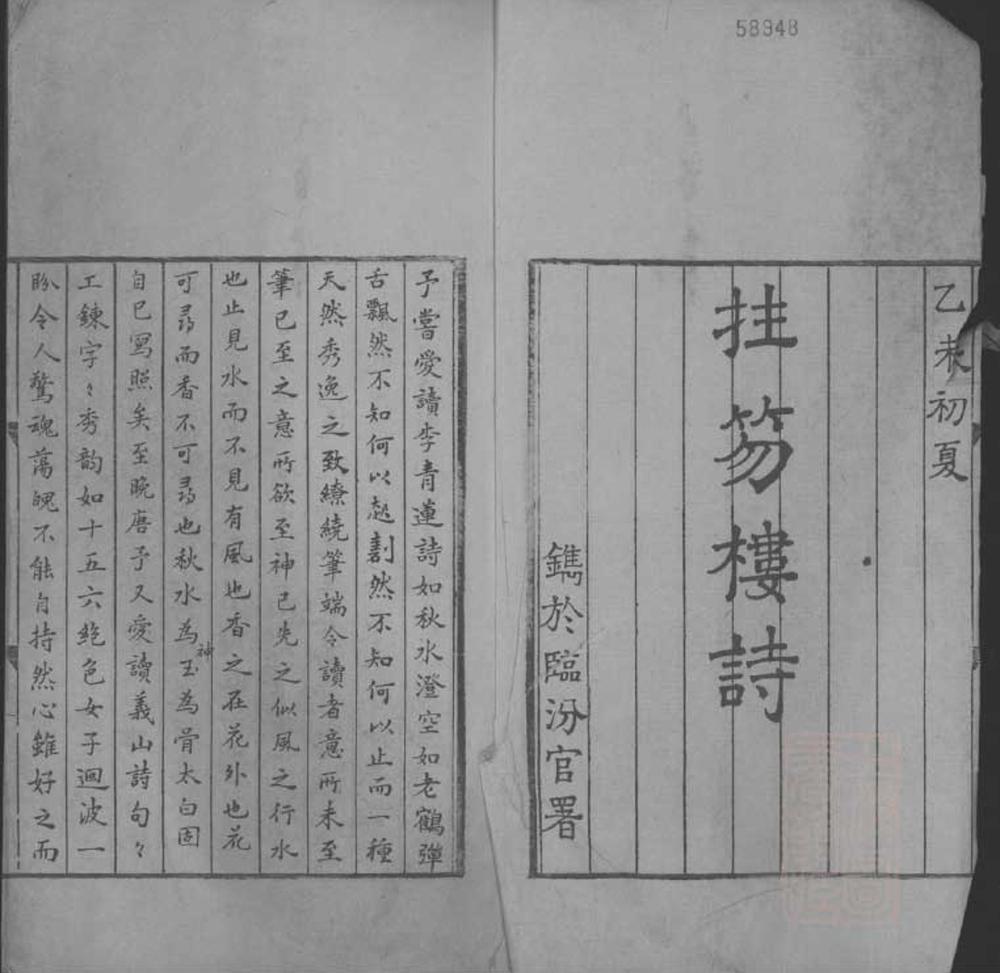 58948
乙未初夏
拄笏樓詩
鐫於臨汾官署
予嘗愛讀李青蓮詩如秋水澄空如老鶴彈
舌飄然不知何以起劃然不知何以止而一種
天然秀逸之致繚繞筆端令讀者意所未至
筆已至之意所欲至神已先之似風之行水
也止見水而不見有風也香之在花外也花
可尋而香不可尋也秋水為神玉為骨太白固
自已寫照矣至晚唐予又愛讀義山詩句〻
工鍊字〻秀韵如十五六絶色女子迴波一
盼令人驚魂蕩魄不能自持然心雖好之而